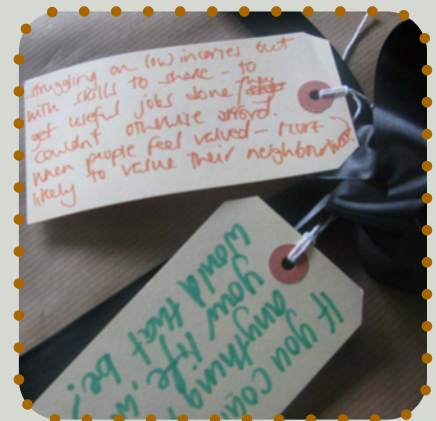 struggling on low incomes but
with skills to share - to
get useful jobs done they
couldn't otherwise afford.
when people feel valued - more
likely to value their neighbourhood.
If you could
anything
your life, w
would that be?